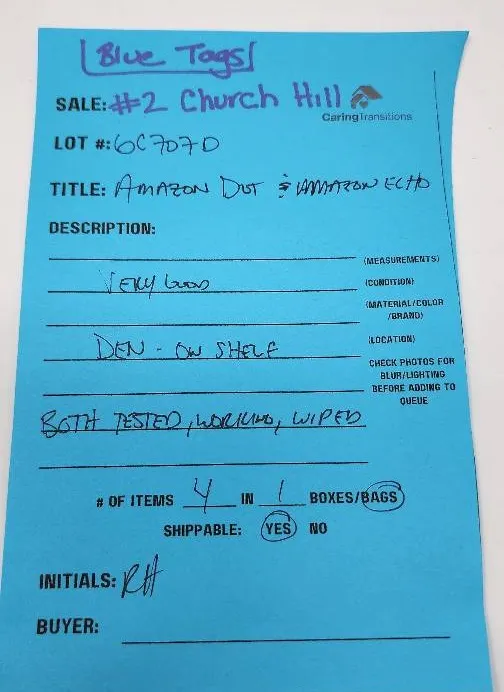 Blue Tags
SALE: #2 Church Hill
CaringTransitions
LOT #: 6C707D
TITLE: AMAZON DOT & AMAZON ECHO
DESCRIPTION:
(MEASUREMENTS)
VERY GOOD (CONDITION)
(MATERIAL/COLOR
/BRAND)
DEN - ON SHELF (LOCATION)
CHECK PHOTOS FOR
BLUR/LIGHTING
BEFORE ADDING TO
QUEUE
BOTH TESTED, WORKING, WIPED
# OF ITEMS 4 IN 1 BOXES/BAGS
SHIPPABLE: YES NO
INITIALS: RH
BUYER: